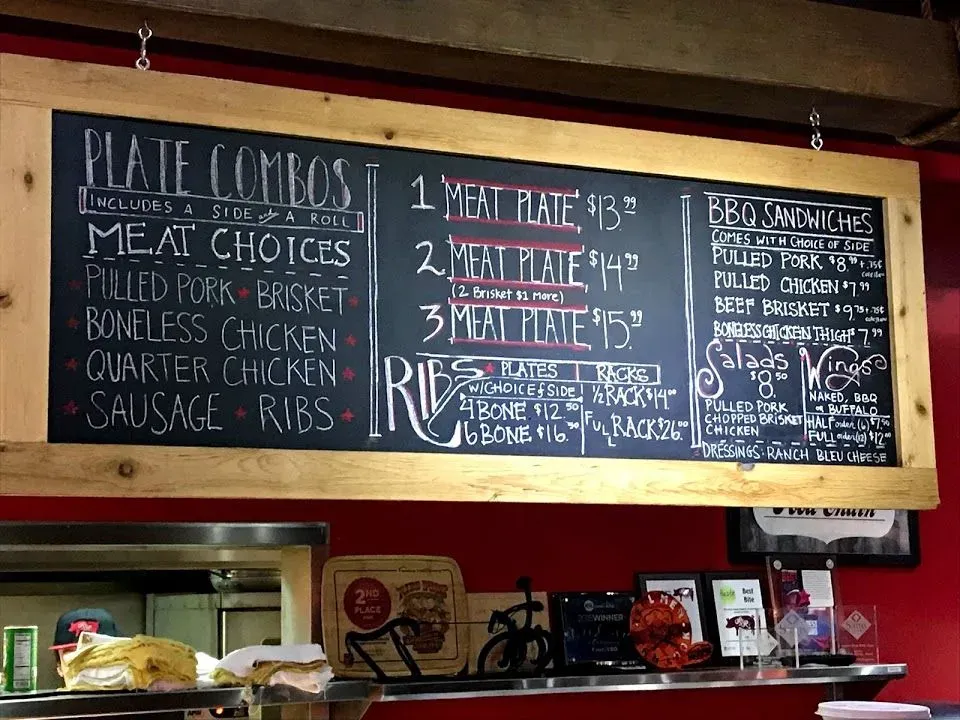 PLATE COMBOS
INCLUDES A SIDE and A ROLL
MEAT CHOICES
PULLED PORK * BRISKET
BONELESS CHICKEN
QUARTER CHICKEN
SAUSAGE * RIBS
1 MEAT PLATE $13.99
2 MEAT PLATE $14.99
(2 Brisket $1 More)
3 MEAT PLATE $15.99
RIBS
PLATES
W/CHOICE of SIDE
4 BONE $12.50
6 BONE $16.50
RACKS
1/2 RACK $14.00
FULL RACK $26.00
BBQ SANDWICHES
COMES WITH CHOICE OF SIDE
PULLED PORK $8.99 +.75¢
PULLED CHICKEN $7.99
BEEF BRISKET $9.75 +.75¢
BONELESS CHICKEN THIGH $7.99
Salads
$8.50
PULLED PORK
CHOPPED BRISKET
CHICKEN
Wings
NAKED, BBQ
or BUFFALO
HALF order (6) $7.50
FULL order (12) $12.00
DRESSINGS: RANCH BLEU CHEESE
2ND
PLACE
WINNER
Best
Bite